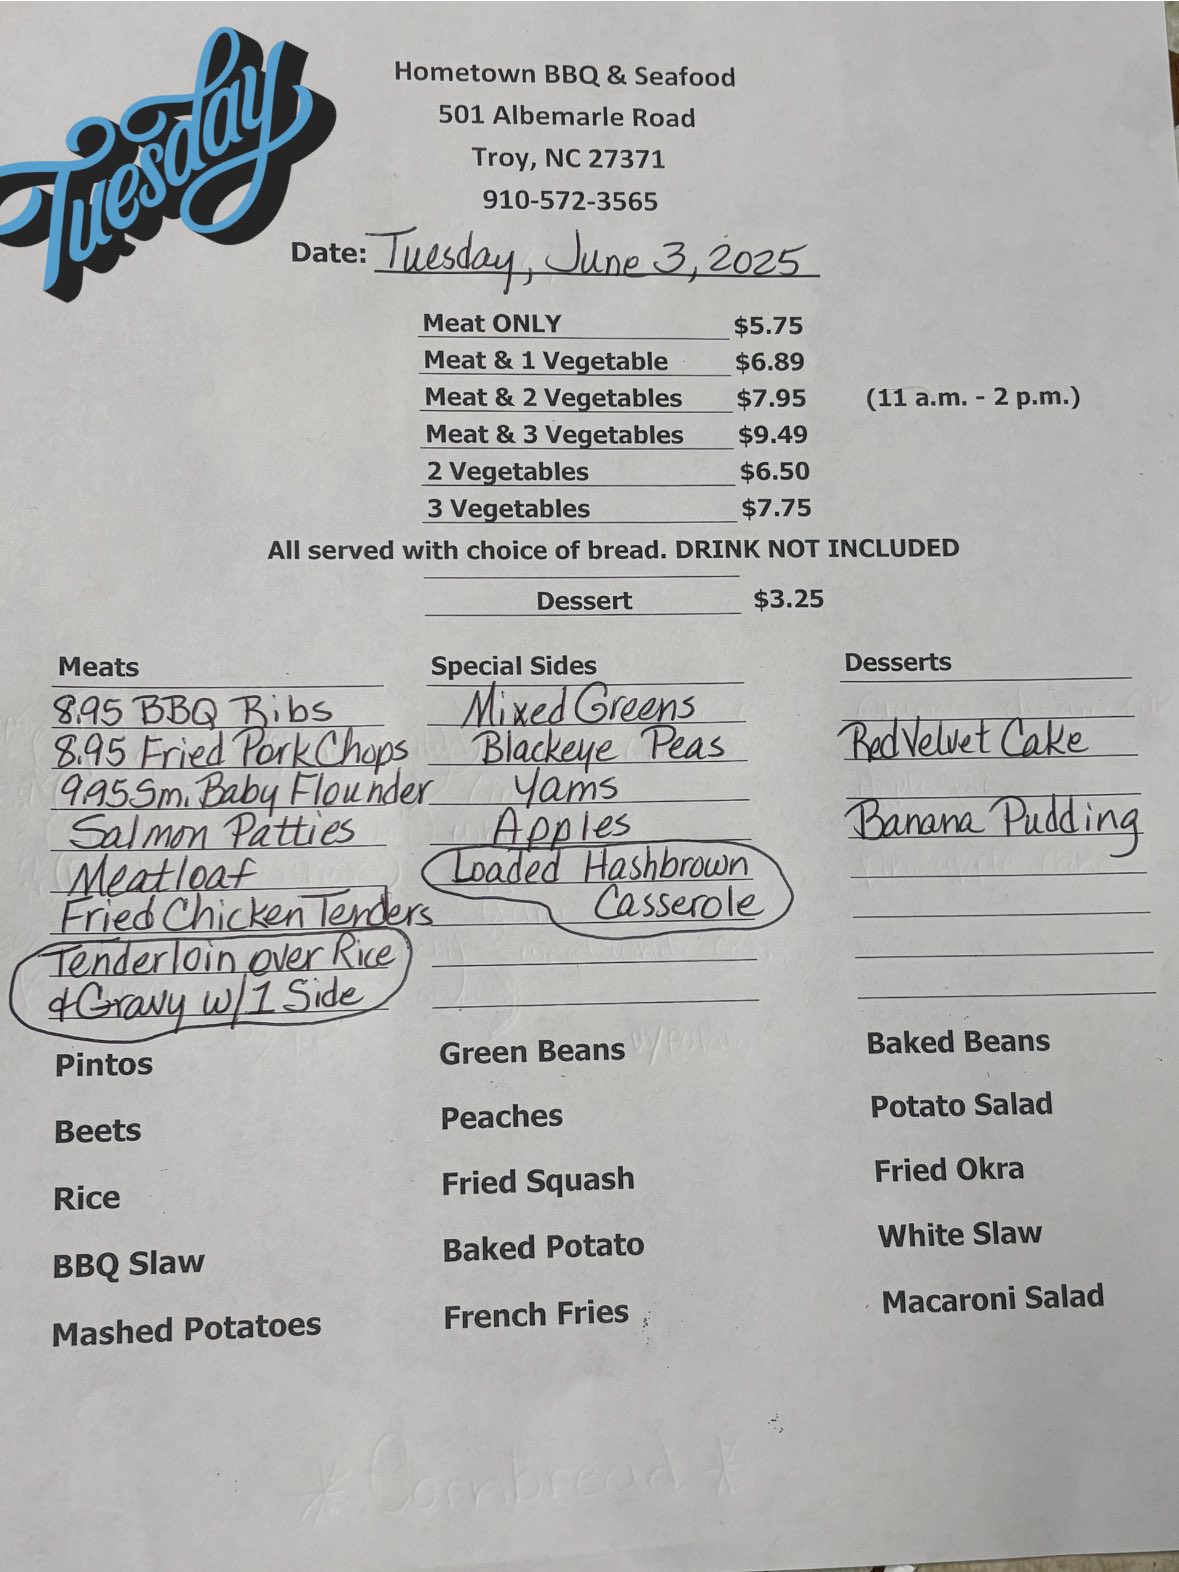 Tuesday
Hometown BBQ & Seafood
501 Albemarle Road
Troy, NC 27371
910-572-3565
Date: Tuesday, June 3, 2025
Meat ONLY $5.75
Meat & 1 Vegetable $6.89
Meat & 2 Vegetables $7.95 (11 a.m. - 2 p.m.)
Meat & 3 Vegetables $9.49
2 Vegetables $6.50
3 Vegetables $7.75
All served with choice of bread. DRINK NOT INCLUDED
Dessert $3.25
Meats
8.95 BBQ Ribs
8.95 Fried Pork Chops
9.95 Sm. Baby Flounder
Salmon Patties
Meatloaf
Fried Chicken Tenders
Tenderloin over Rice
& Gravy w/1 Side
Special Sides
Mixed Greens
Blackeye Peas
Yams
Apples
Loaded Hashbrown
Casserole
Desserts
Red Velvet Cake
Banana Pudding
Pintos
Beets
Rice
BBQ Slaw
Mashed Potatoes
Green Beans
Peaches
Fried Squash
Baked Potato
French Fries
Baked Beans
Potato Salad
Fried Okra
White Slaw
Macaroni Salad
*Cornbread*